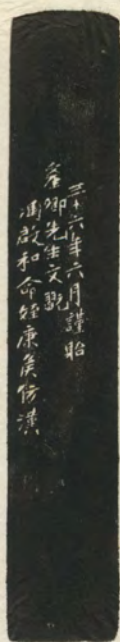 三十六年六月謹貽
卿先生文翫
馮啟和命姪康矦仿漢